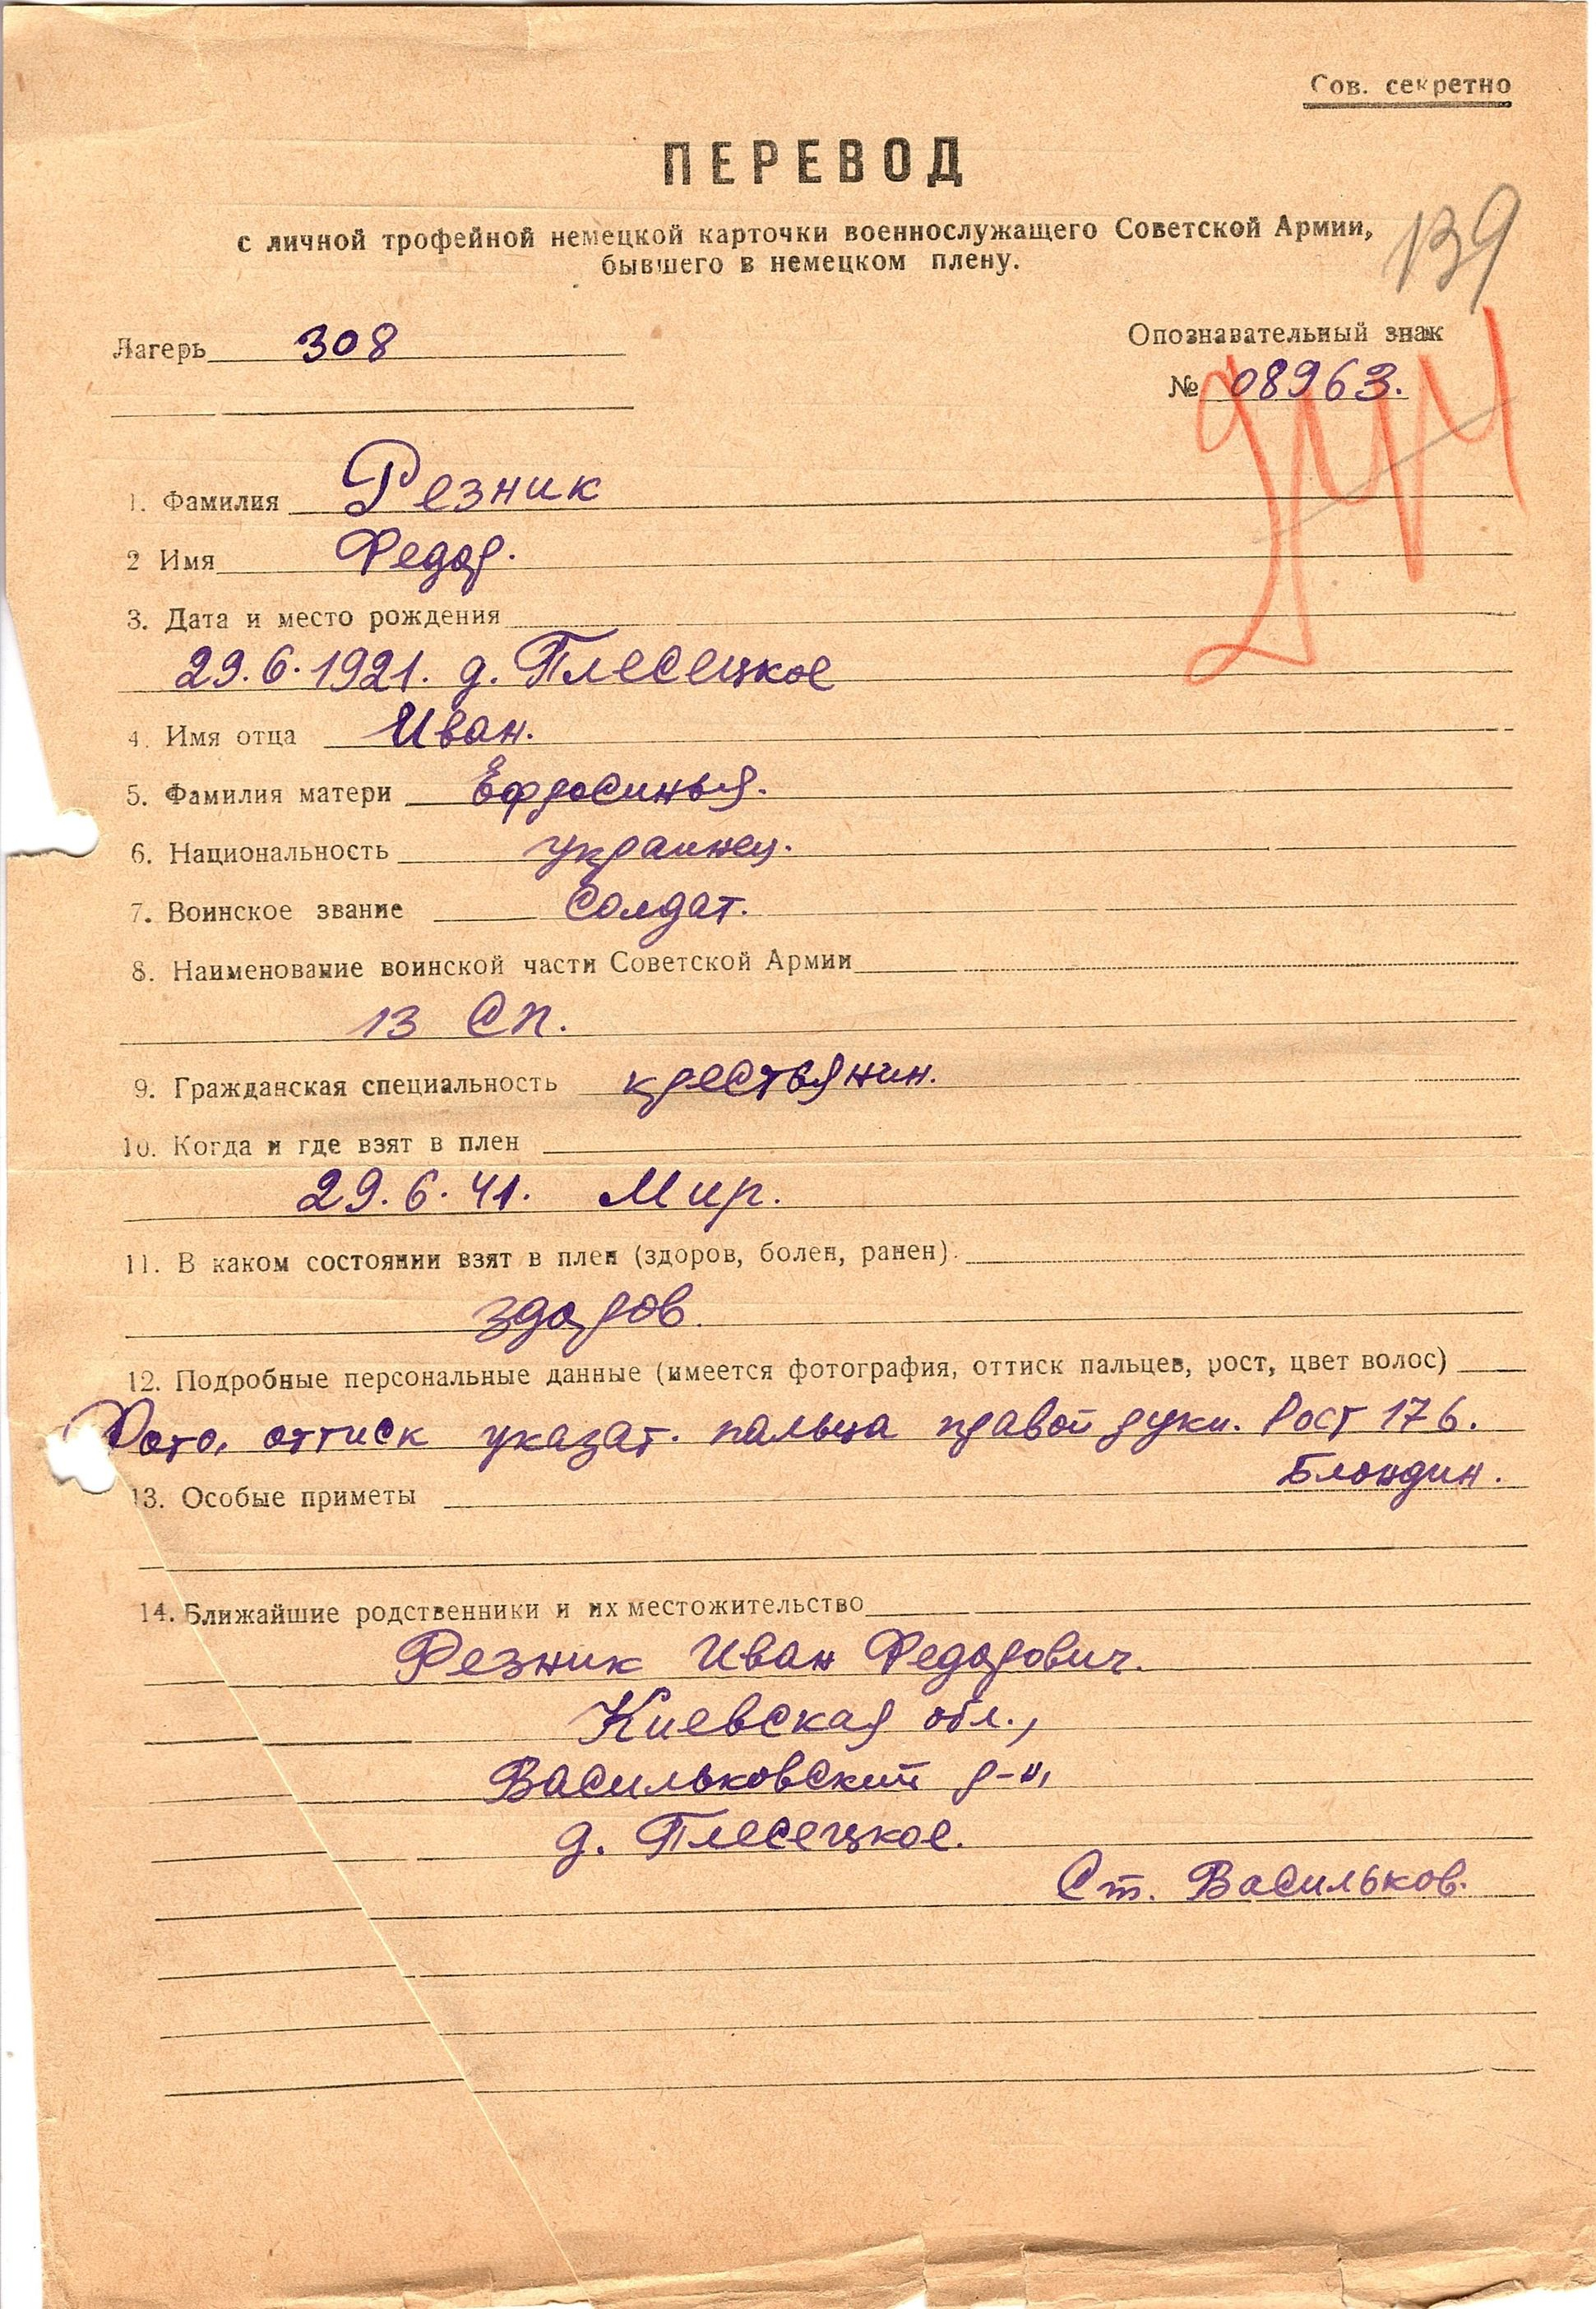 Сов. секретно
ПЕРЕВОД
с личной трофейной немецкой карточки военнослужащего Советской Армии,
бывшего в немецком плену.
139
Лагерь 308
Опознавательный знак
№ 08963.
1. Фамилия Резник
2 Имя Федор.
3. Дата и место рождения
29.6.1921. д. Плесецкое
4. Имя отца Иван.
5. Фамилия матери Ефросинья.
6. Национальность украинец.
7. Воинское звание Солдат.
8. Наименование воинской части Советской Армии
13 СП.
9. Гражданская специальность крестьянин.
10. Когда и где взят в плен
29.6.41. Мир.
11. В каком состоянии взят в плен (здоров, болен, ранен).
здоров.
12. Подробные персональные данные (имеется фотография, оттиск пальцев, рост, цвет волос)
Фото, оттиск указат. пальца правой руки. Рост 176.
Блондин.
13. Особые приметы
14. Ближайшие родственники и их местожительство
Резник Иван Федорович.
Киевская обл.,
Васильковский р-н,
д. Плесецкое.
Ст. Васильков.